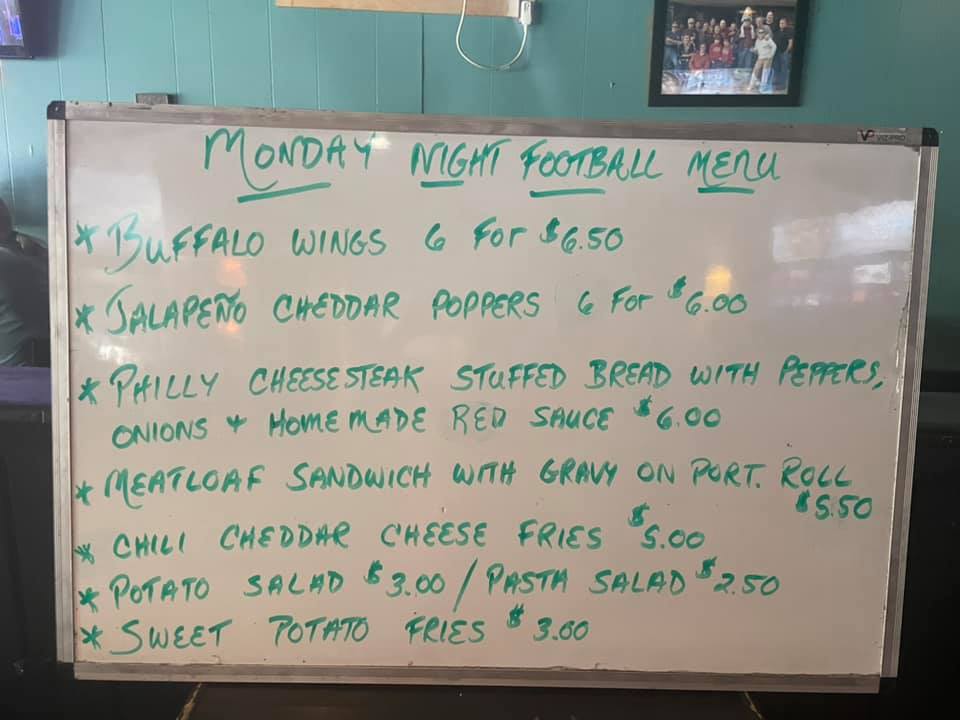 MONDAY NIGHT FOOTBALL MENU
* BUFFALO WINGS 6 FOR $6.50
* JALAPEÑO CHEDDAR POPPERS 6 FOR $6.00
* PHILLY CHEESESTEAK STUFFED BREAD WITH PEPPERS,
ONIONS + HOMEMADE RED SAUCE $6.00
* MEATLOAF SANDWICH WITH GRAVY ON PORT. ROLL
$5.50
* CHILI CHEDDAR CHEESE FRIES $5.00
* POTATO SALAD $3.00 / PASTA SALAD $2.50
* SWEET POTATO FRIES $3.00